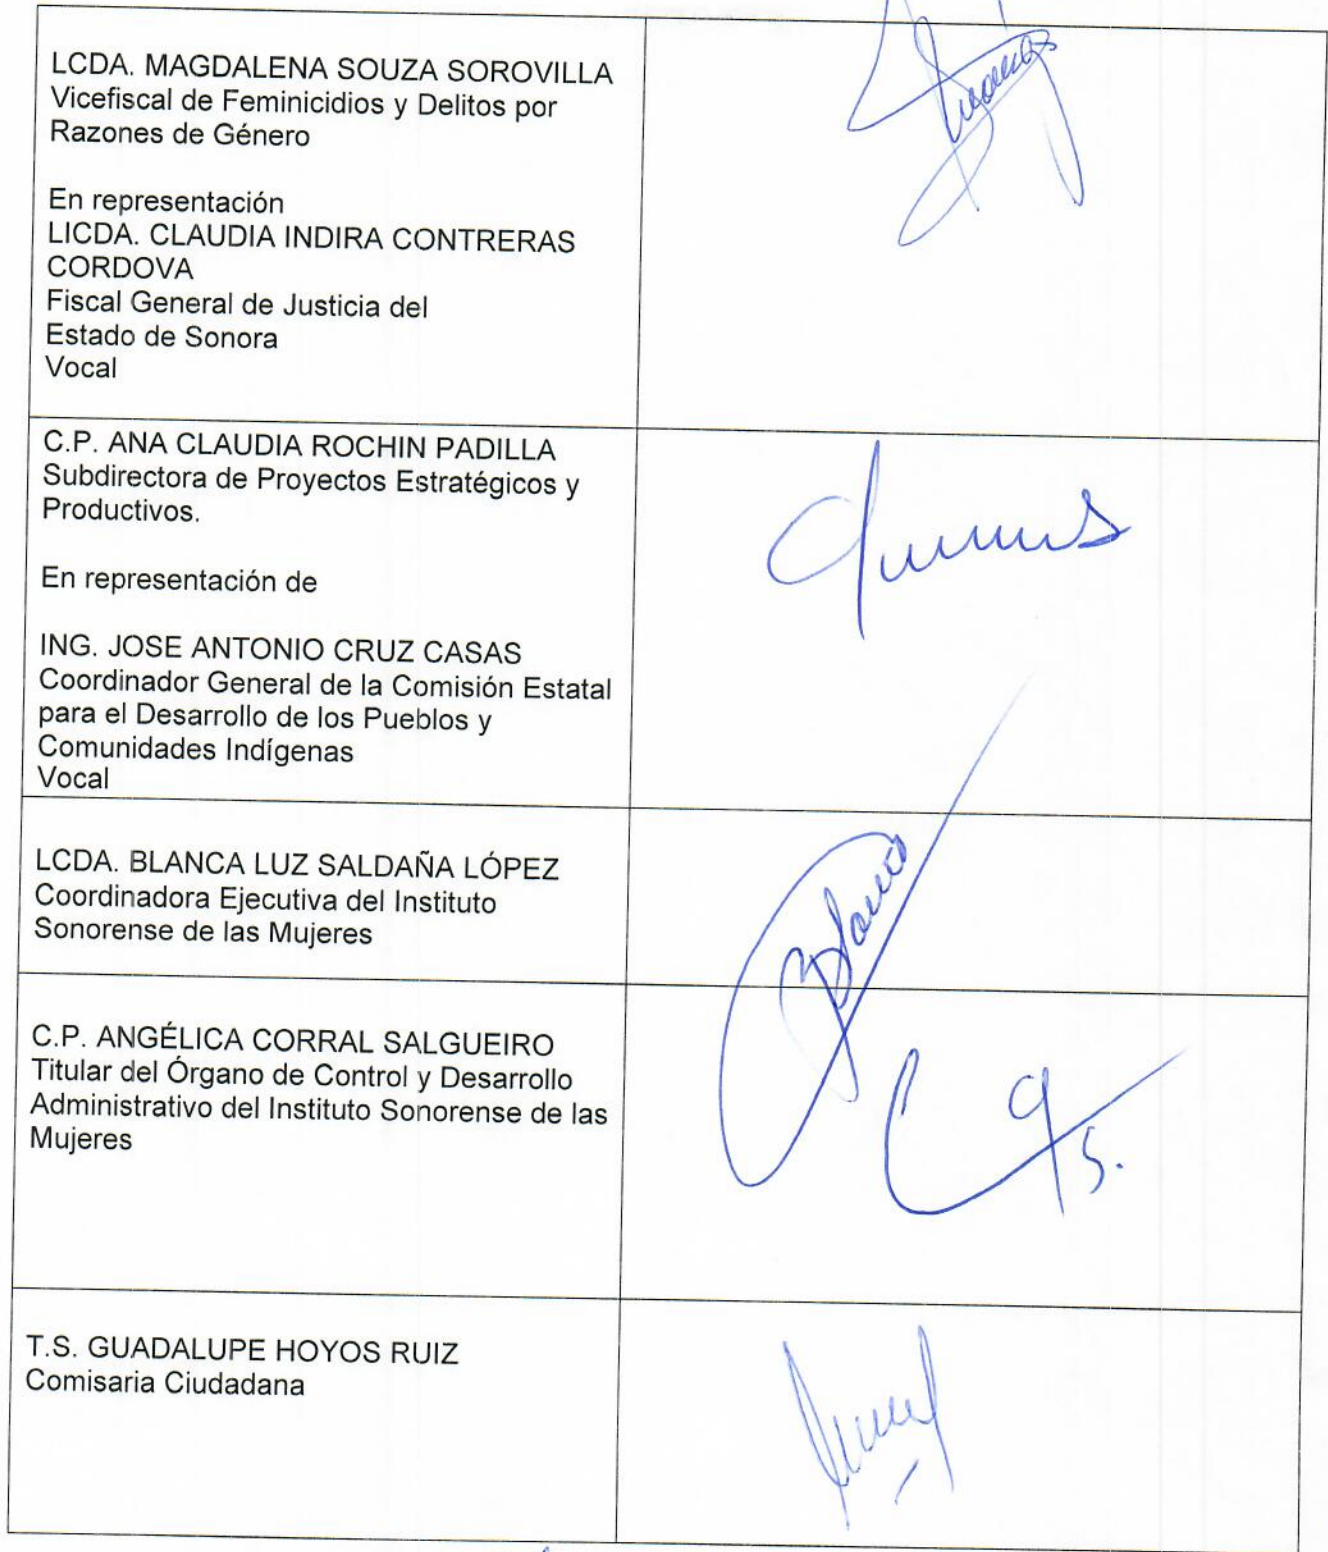 LCDA. MAGDALENA SOUZA SOROVILLA
Vicefiscal de Feminicidios y Delitos por
Razones de Género
En representación
LICDA. CLAUDIA INDIRA CONTRERAS
CORDOVA
Fiscal General de Justicia del
Estado de Sonora
Vocal
C.P. ANA CLAUDIA ROCHIN PADILLA
Subdirectora de Proyectos Estratégicos y
Productivos.
En representación de
ING. JOSE ANTONIO CRUZ CASAS
Coordinador General de la Comisión Estatal
para el Desarrollo de los Pueblos y
Comunidades Indígenas
Vocal
LCDA. BLANCA LUZ SALDAÑA LÓPEZ
Coordinadora Ejecutiva del Instituto
Sonorense de las Mujeres
C.P. ANGÉLICA CORRAL SALGUEIRO
Titular del Órgano de Control y Desarrollo
Administrativo del Instituto Sonorense de las
Mujeres
T.S. GUADALUPE HOYOS RUIZ
Comisaria Ciudadana